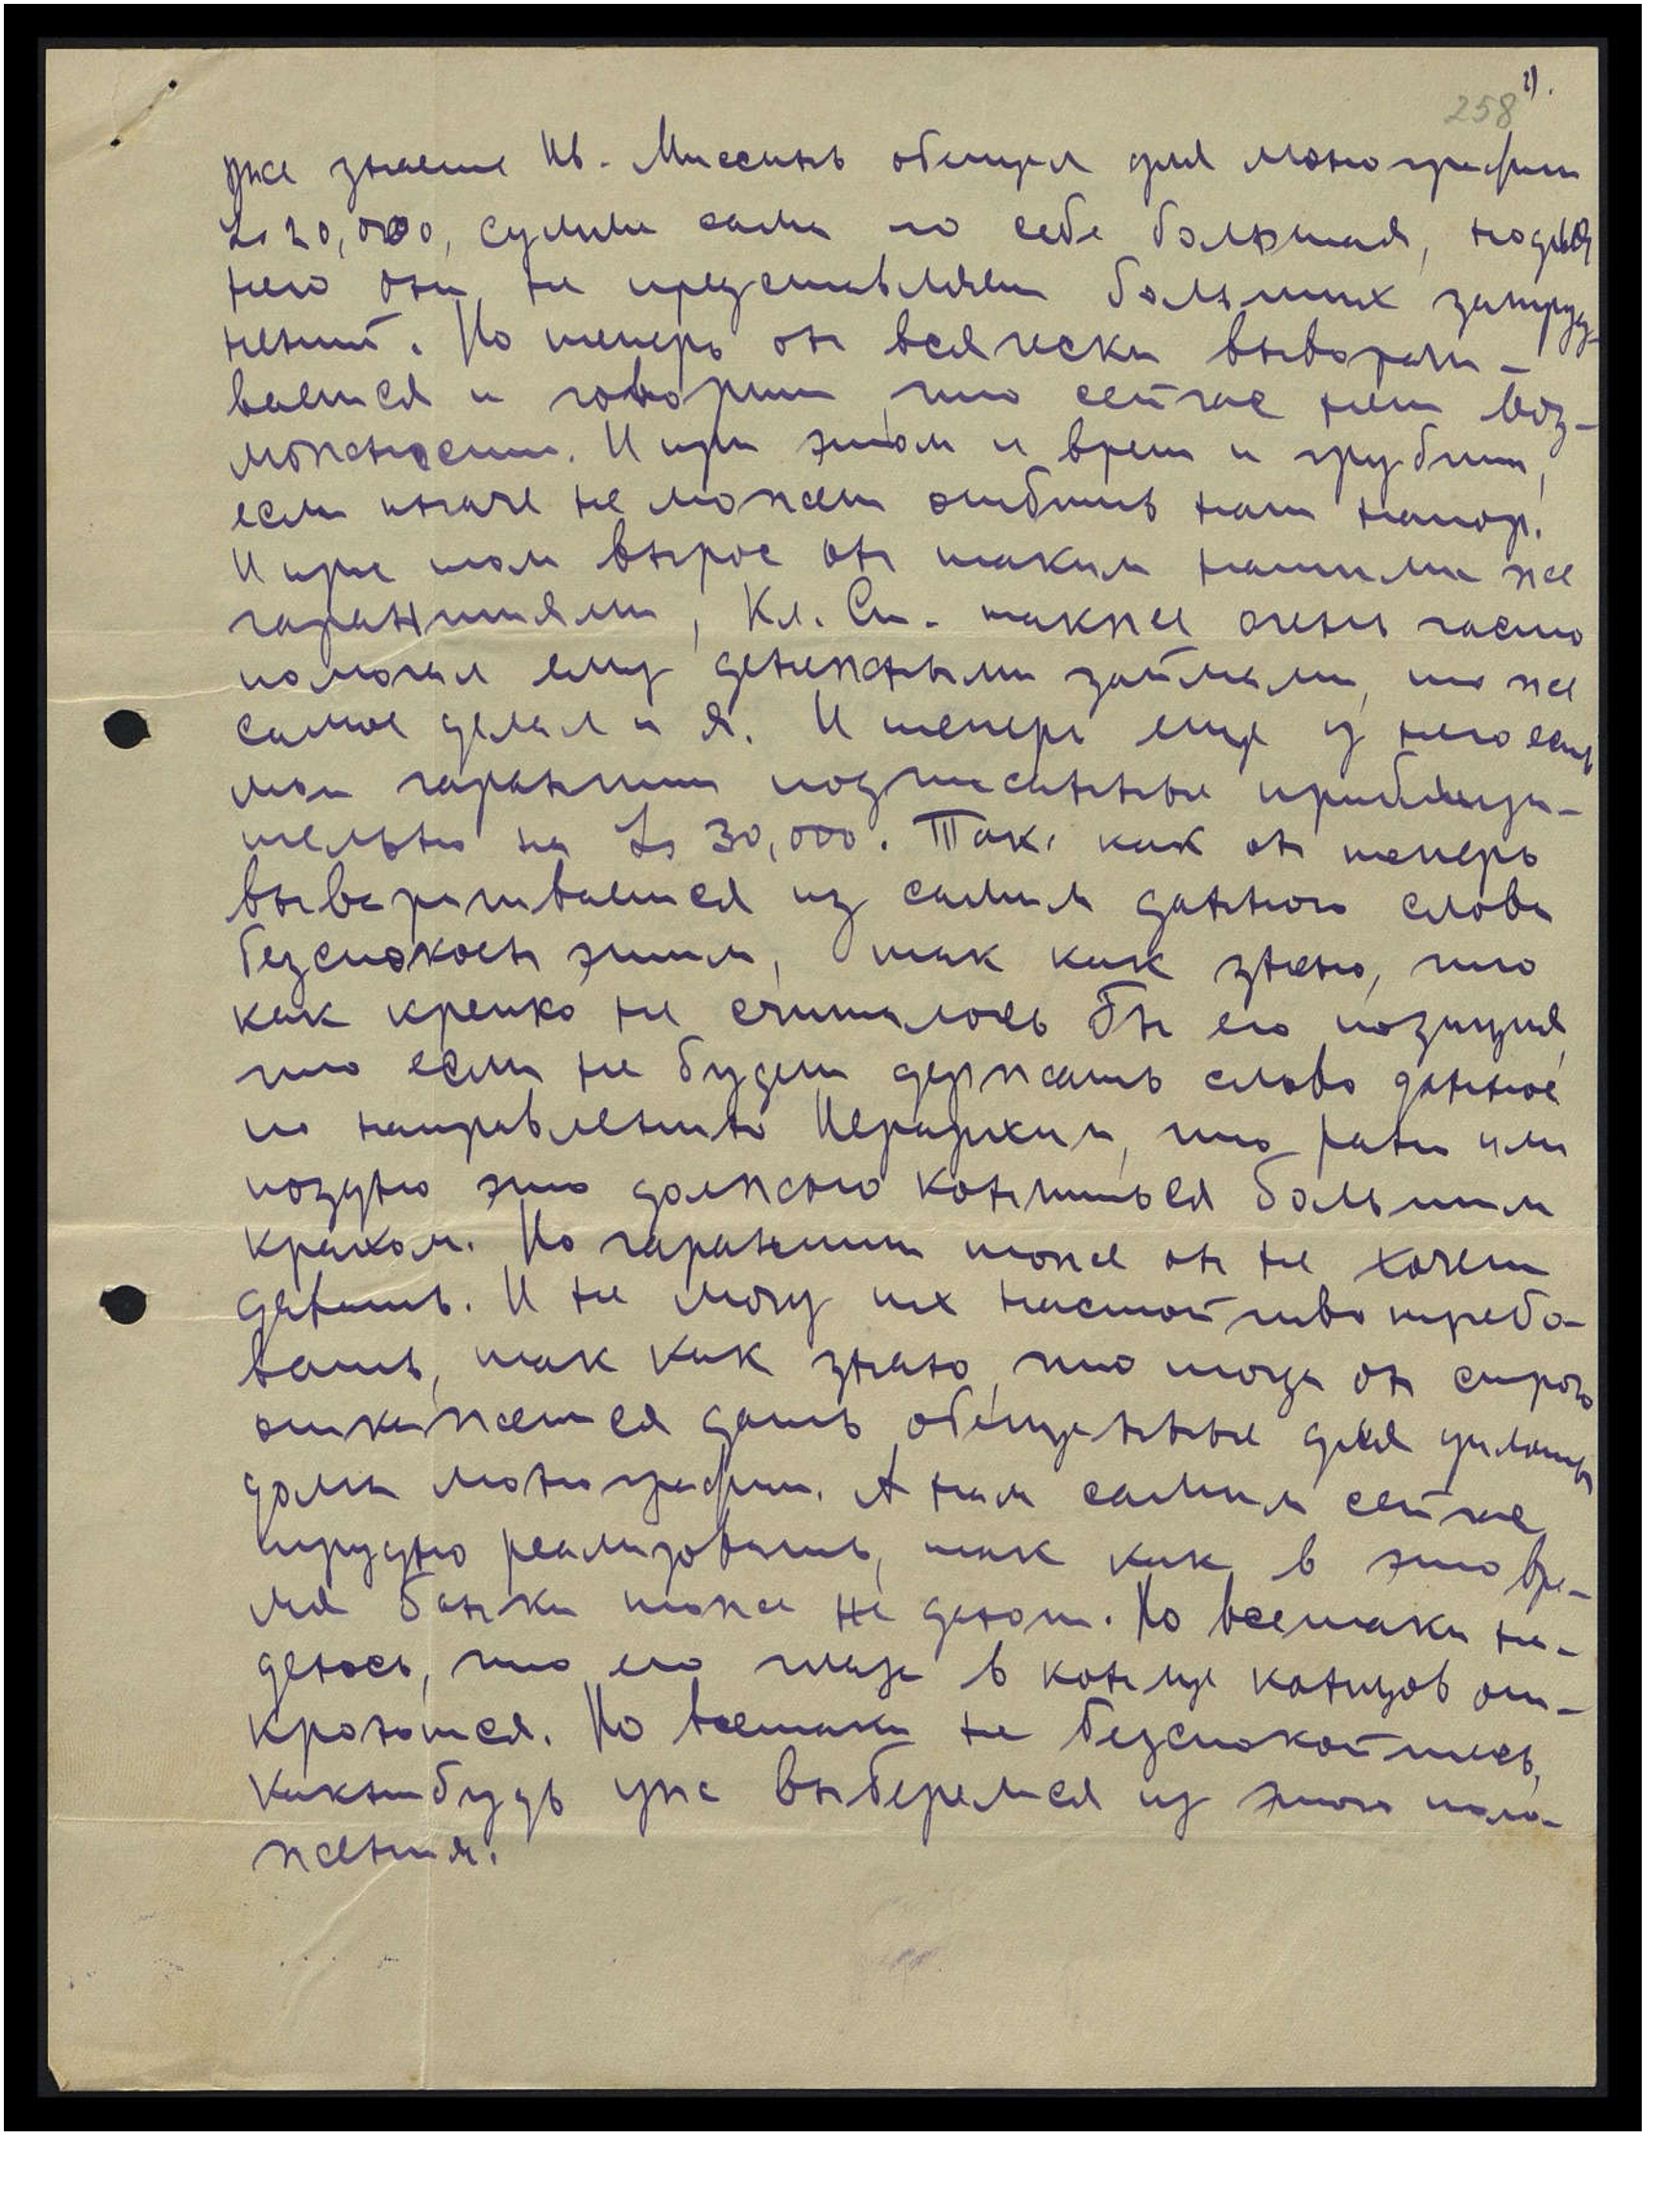 2).
258
уже знаете Ив. Миссинь обещал для монографии
Ls 20,000, сумма сама по себе большая, но для
него она не представляет больших затруд-
нений. Но теперь он всячески выворачи-
вается и говорит, что сейчас нет воз-
можности. И при этом и врет и грубит,
если иначе не может отбить наш напор.
И при том вырос он таким нашими же
гарантиями, Кл. Ст. также очень часто
помогал ему денежными займами, то же
самое делал и я. И теперь еще у него есть
мои гарантии подписанные приблизи-
тельно на Ls 30,000. Так как он теперь
выворачивается из самим данного слова
безспокоен этим, так как знаю, что
как крепко не считалось бы его позиция,
что если не будет держать слово данное
по направлению Иерархии, что рано или
поздно это должно кончиться большим
крахом. Но гарантии тоже он не хочет
давать. И не могу их настойчиво требо-
вать, так как знаю, что тогда он строго
откажется дать обещанные для уплаты
долга монографии. А нам самим сейчас
трудно реализовать, так как в это вре-
мя банки тоже не дают. Но всетаки на-
деюсь, что его глаза в конце концов от-
кроются. Но всетаки не безспокойтесь,
какнибудь уже выберемся из этого поло-
жения.